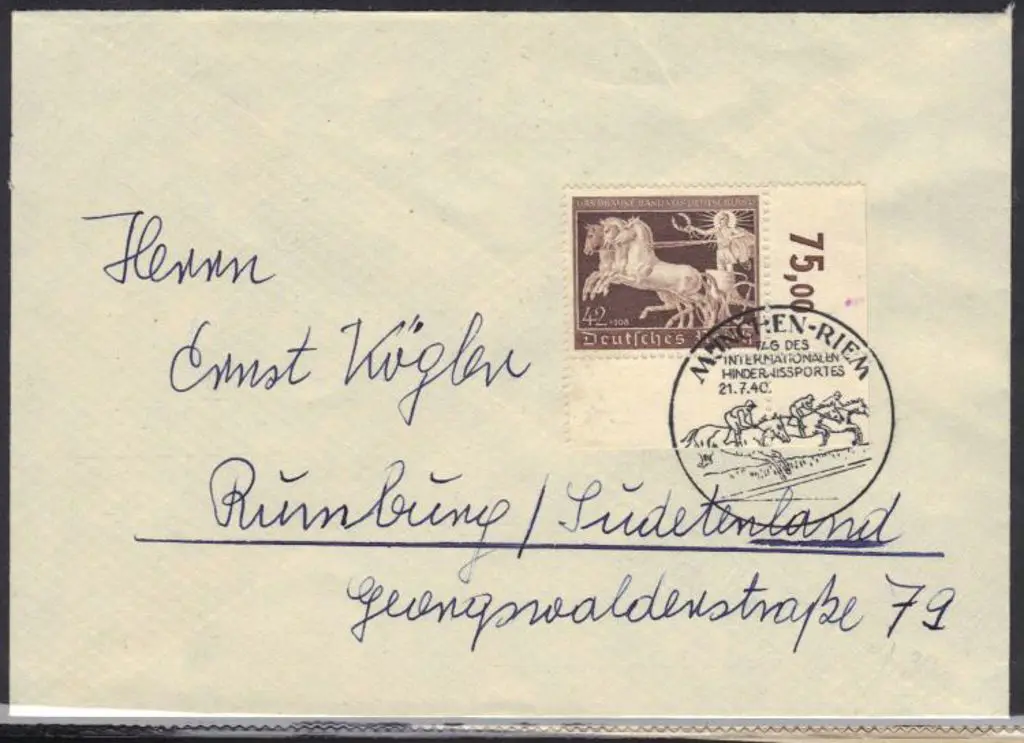 Herrn
Ernst Kögler
Rumburg / Sudetenland
Georgswalderstraße 79
DAS BRAUNE BAND VON DEUTSCHLAND
42+108
Deutsches Reich
75,00
MÜNCHEN-RIEM
TAG DES
INTERNATIONALEN
HINDERNISSPORTES
21.7.40.